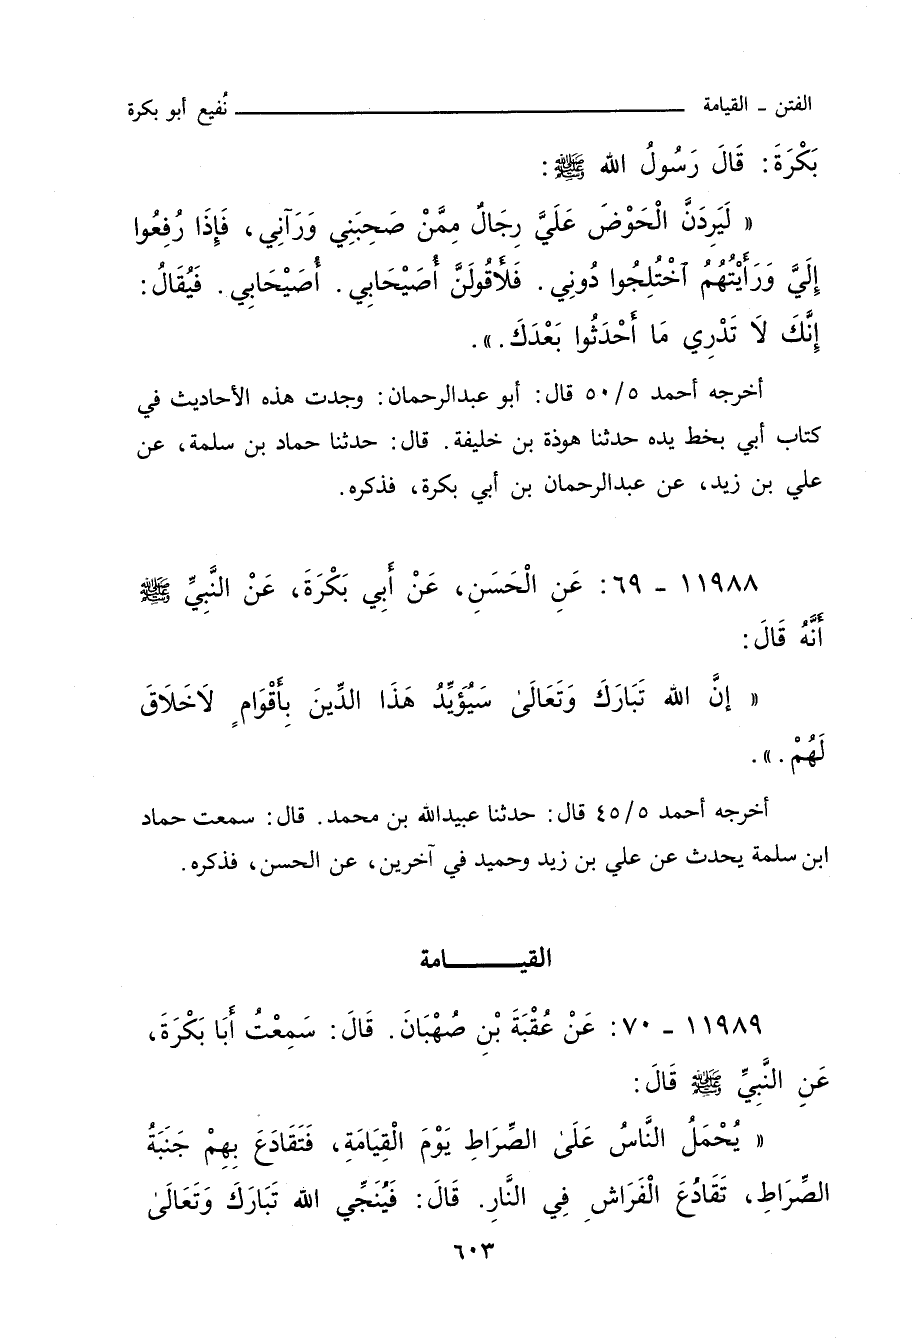 الفتن ــ القيامة ــــــــــــــــ نُفيع أبو بكرة
بَكْرَةَ: قَالَ رَسُولُ الله ﷺ:
« لَيَرِدَنَّ الْحَوْضَ عَلَيَّ رِجَالٌ مِمَّنْ صَحِبَنِي وَرَآنِي، فَإِذَا رُفِعُوا
إِلَيَّ وَرَأَيْتُهُمُ ٱخْتُلِجُوا دُونِي. فَلأَقُولَنَّ أُصَيْحَابِي. أُصَيْحَابِي. فَيُقَالُ:
إِنَّكَ لَا تَدْرِي مَا أَحْدَثُوا بَعْدَكَ.».
أخرجه أحمد ٥/٥٠ قال: أبو عبدالرحمان: وجدت هذه الأحاديث في
كتاب أبي بخط يده حدثنا هوذة بن خليفة. قال: حدثنا حماد بن سلمة، عن
علي بن زيد، عن عبدالرحمان بن أبي بكرة، فذكره.
١١٩٨٨ ــ ٦٩: عَنِ الْحَسَنِ، عَنْ أَبِي بَكْرَةَ، عَنْ النَّبِيِّ ﷺ
أَنَّهُ قَالَ:
« إِنَّ الله تَبَارَكَ وَتَعَالَىٰ سَيُؤَيِّدُ هَذَا الدِّينَ بِأَقْوَامٍ لَاخَلَاقَ
لَهُمْ.».
أخرجه أحمد ٥/٤٥ قال: حدثنا عبيدالله بن محمد. قال: سمعت حماد
ابن سلمة يحدث عن علي بن زيد وحميد في آخرين، عن الحسن، فذكره.
القيــــــامة
١١٩٨٩ ــ ٧٠: عَنْ عُقْبَةَ بْنِ صُهْبَانَ. قَالَ: سَمِعْتُ أَبَا بَكْرَةَ،
عَنِ النَّبِيِّ ﷺ قَالَ:
« يُحْمَلُ النَّاسُ عَلَىٰ الصِّرَاطِ يَوْمَ الْقِيَامَةِ، فَتَقَادَعَ بِهِمْ جَنَبَةُ
الصِّرَاطِ، تَقَادُعَ الْفَرَاشِ فِي النَّارِ. قَالَ: فَيُنَجِّي الله تَبَارَكَ وَتَعَالَىٰ
٦٠٣